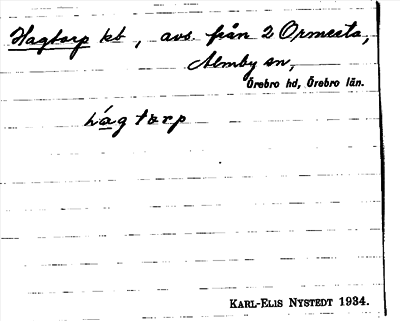 Hagtorp kb, avs. från 2 Ormesta,
Almby sn,
Örebro hd, Örebro län.
hágtorp
KARL-ELIS NYSTEDT 1934.